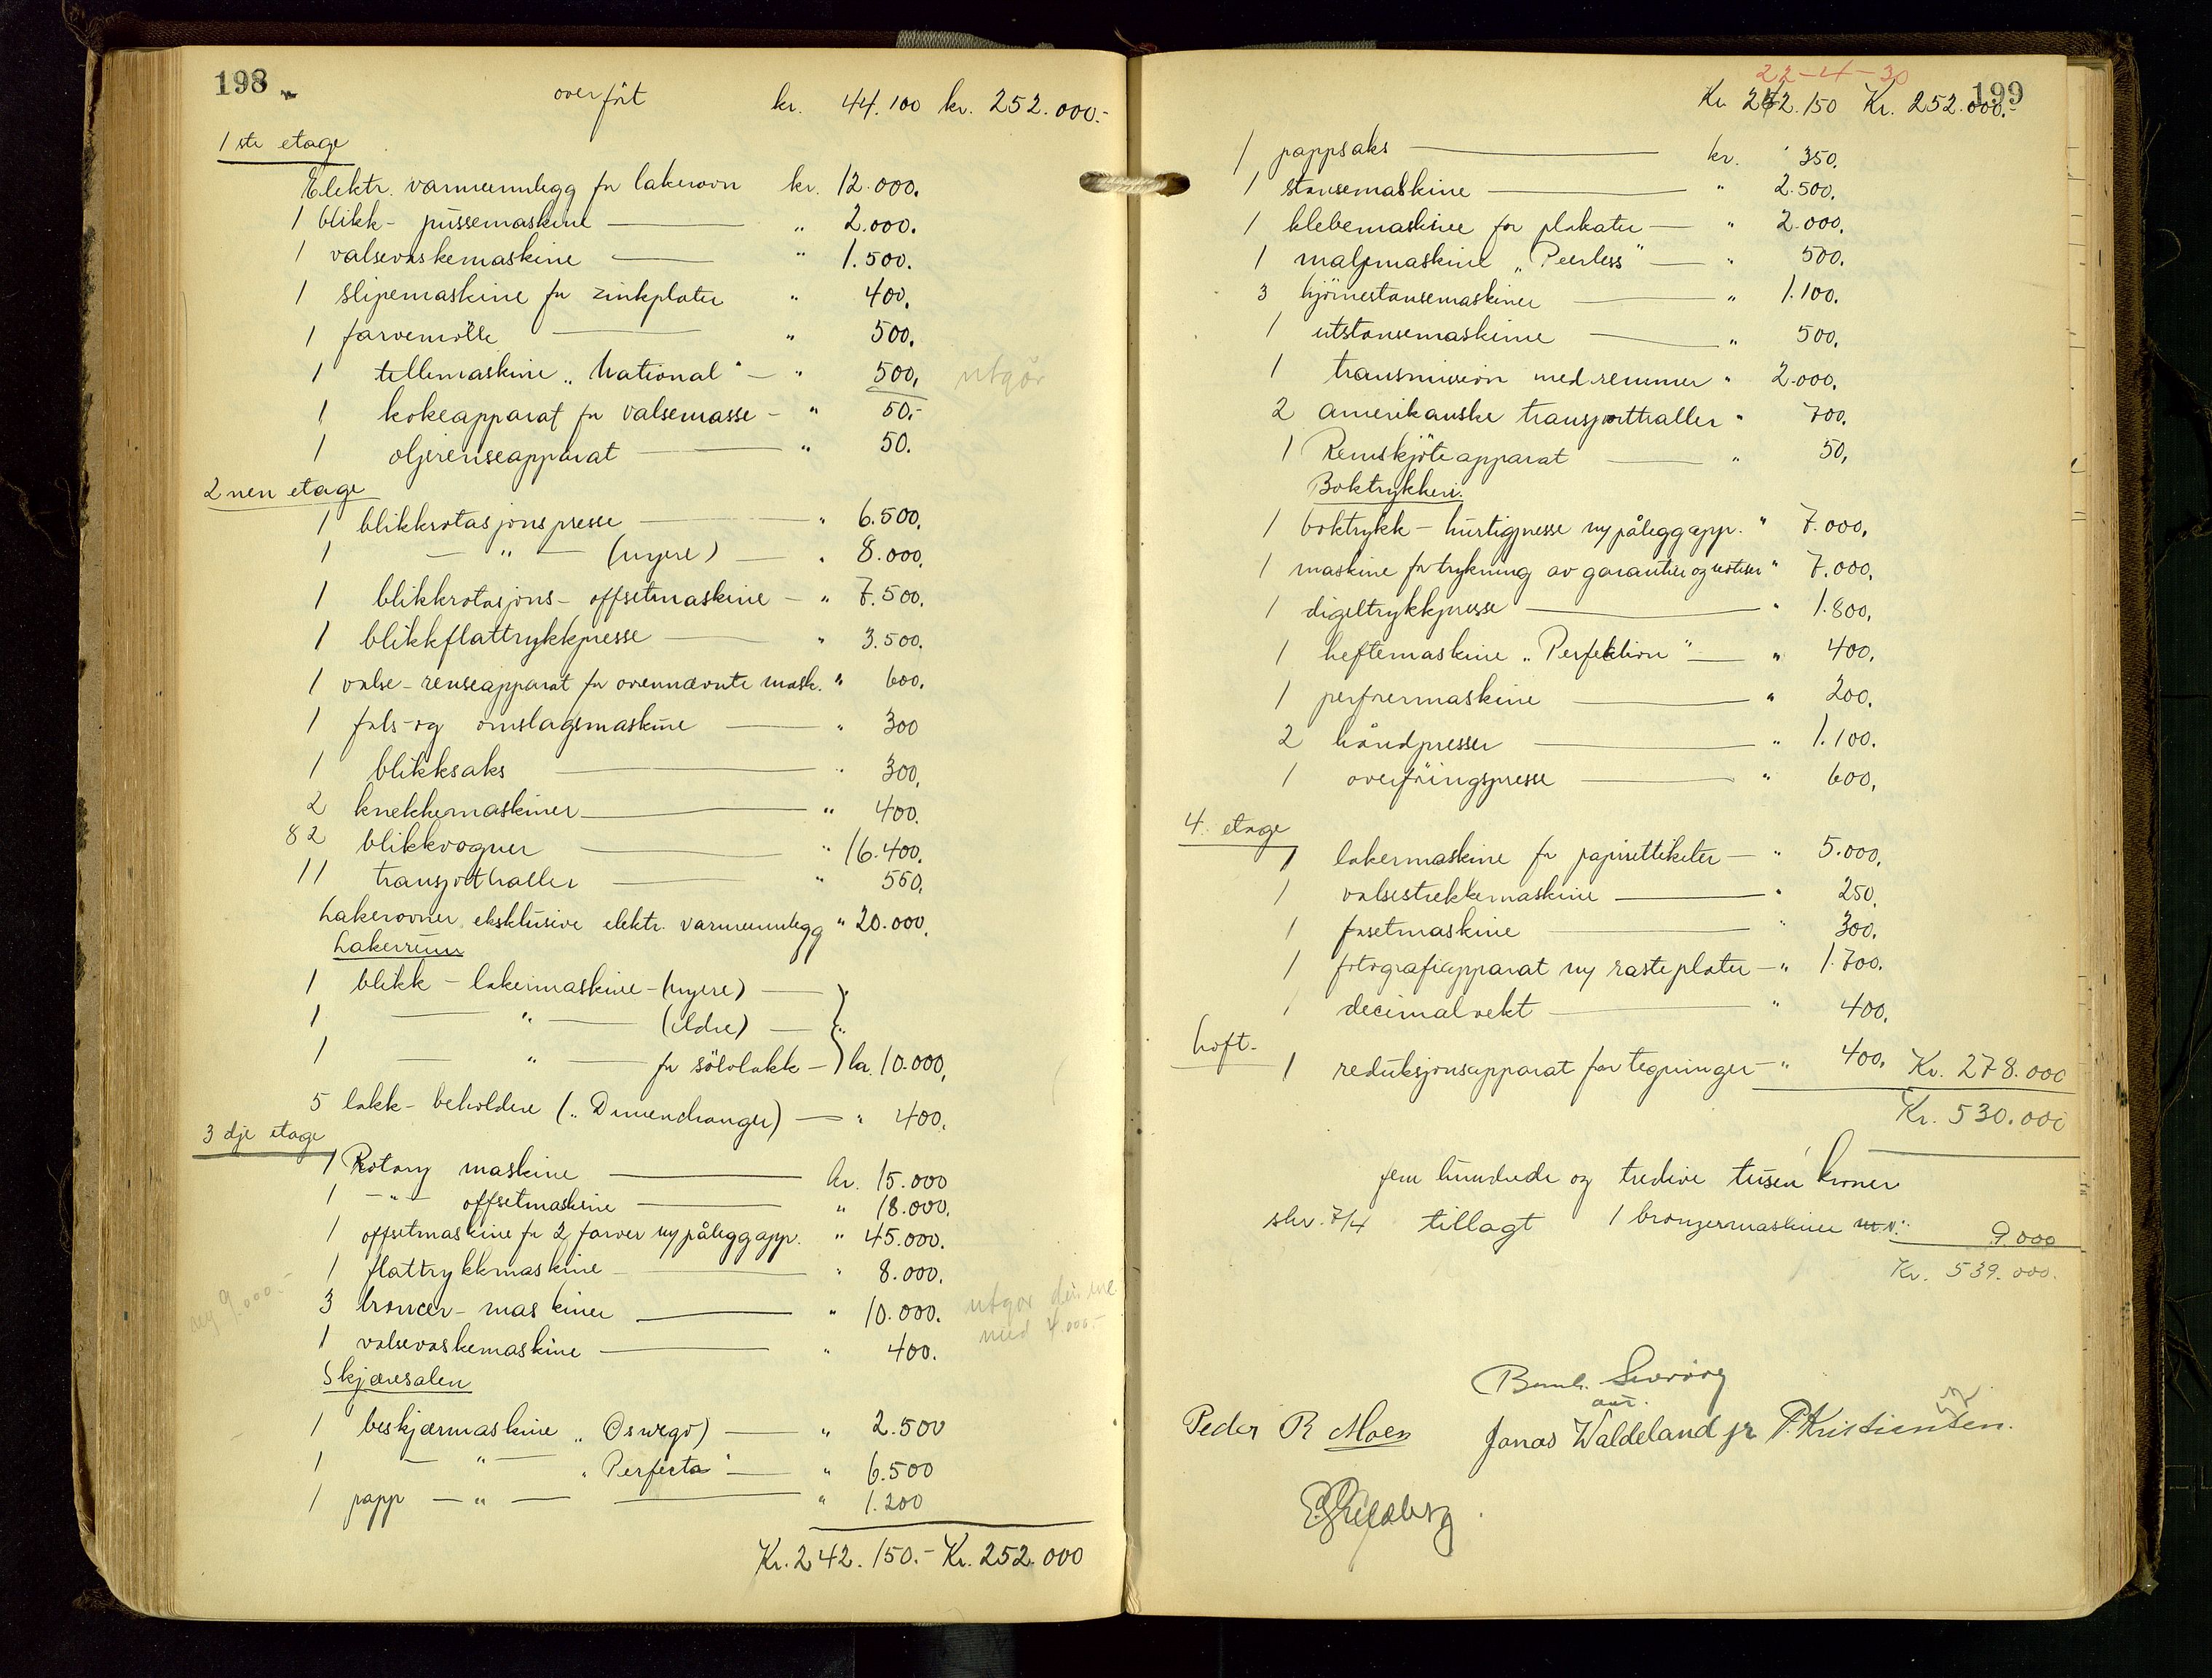 198
overført kr. 44.100 kr. 252.000.-
1ste etage
Elektr. varmeanlegg for lakerovn kr. 12.000.
1 blikk- pussemaskine " 2.000.
1 valsevaskemaskine " 1.500.
1 slipemaskine for zinkplater " 400.
1 farvemølle " 500.
1 tellemaskine „National" " 500, utgår
1 kokeapparat for valsemasse - " 50.-
1 oljerenseapparat " 50.
2nen etage
1 blikkrotasjonspresse " 6.500.
1 — " — (nyere) " 8.000.
1 blikkrotasjons- offsetmaskine - " 7.500.
1 blikkflattrykkpresse " 3.500.
1 valse-renseapparat for ovennævnte mask. " 600.
1 fals-og omslagsmaskine " 300
1 blikksaks " 300,
2 knekkemaskiner " 400.
82 blikkvogner " 16.400.
11 transporttraller " 550,
Lakerovner eksklusive elektr. varmeanlegg " 20.000.
Lakerrum
1 blikk - lakermaskine - (nyere)
1 — " — (eldre) "
1 — " — for sølvlakk - kr. 10.000,
5 lakk- beholdere („Dunendranger) " 400.
3dje etage
1 Rotary maskine kr. 15.000
1 - " - offsetmaskine " 18.000.
1 offsetmaskine for 2 farver m/påleggapp. " 45.000.
1 flattrykkmaskine " 8.000.
ny 9.000.- 3 broncer-maskiner " 10.000. utgår denne
med 4.000.-
1 valsevaskemaskine " 400.
Skjæresalen
1 beskjærmaskine „Oswego) " 2.500
1 — " — „Perfecta" " 6.500
1 papp — " — " 1.200
Kr. 242.150.- Kr. 252.000
22-4-30
199
Kr 242.150 Kr. 252.000.-
1 pappsaks kr. 350.
1 stansemaskine " 2.500.
1 klebemaskine for plakater " 2.000.
1 malemaskine „Peerless" " 500.
3 hjørnestansemaskiner " 1.100.
1 utstansemaskine " 500.
1 transmission med remmer " 2.000.
2 amerikanske transporttraller " 700.
1 Remskjøteapparat " 50,
Boktrykkeri.
1 boktrykk - hurtigpresse m/påleggapp. " 7.000,
1 maskine for trykning av garantier og notiser " 7.000,
1 digeltrykkpresse " 1.800,
1 heftemaskine „Perfektion" " 400,
1 perforermaskine " 200.
2 håndpresser " 1.100.
1 overføringspresse " 600,
4. etage
1 lakermaskine for papiretiketter " 5.000.
1 valsestrekkemaskine " 250.
1 fasetmaskine " 300.
1 fotografiapparat m/ rasteplater - " 1.700.
1 decimalvekt " 400.
Loft.
1 reduksjonsapparat for tegninger " 400. Kr. 278.000
Kr. 530.000
fem hundrede og tredive tusen kroner
skr. 7/4 tillagt 1 bronzermaskine m.v. 9.000
Kr. 539.000.
Peder R Moen Jonas Waldeland jr P. Kristiansen.